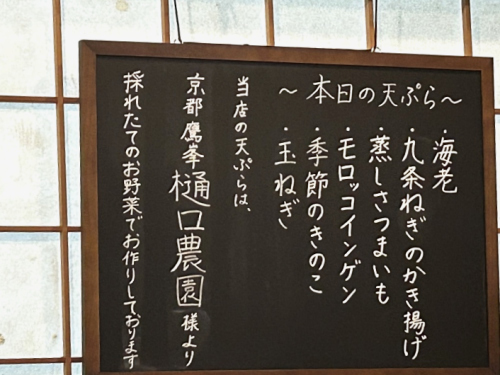 ～本日の天ぷら～
・海老
・九条ねぎのかき揚げ
・蒸しさつまいも
・モロッコインゲン
・季節のきのこ
・玉ねぎ
当店の天ぷらは、
京都鷹峯樋口農園様より
採れたてのお野菜でお作りしております